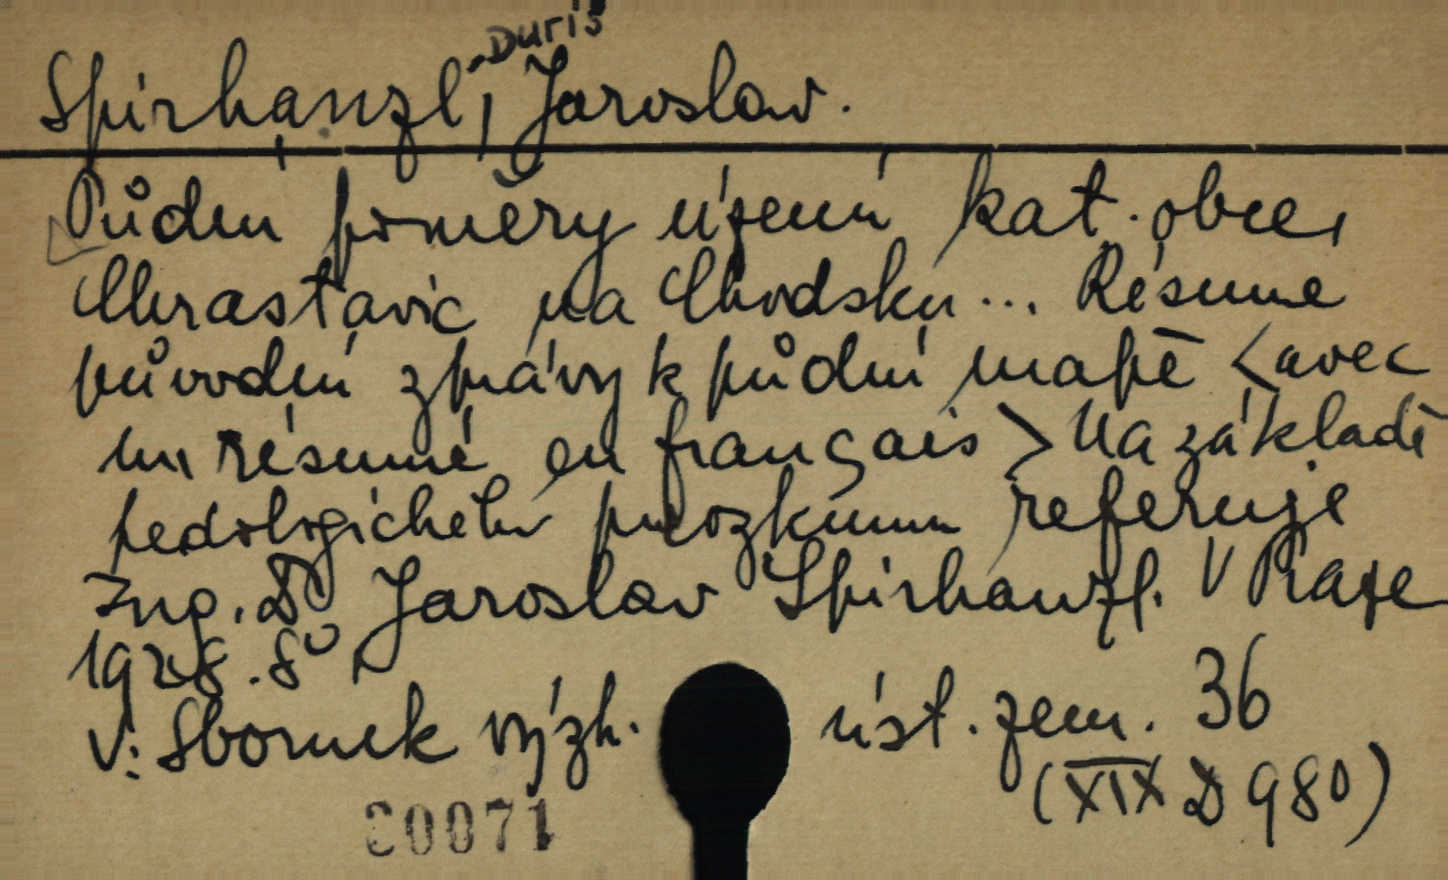 Spirhanzl-Duriš, Jaroslav.
Půdní poměry území kat. obce,
Chrastavic na Chodsku ... Résumé
původní zprávy k půdní mapě <avec
un résumé en français> Na základě
pedologického průzkumu referuje
Ing. Dr Jaroslav Spirhanzl. V Praze
1928. 8°.
V: Sborník výzk. úst. zem. 36
(XIX D 980)
30071